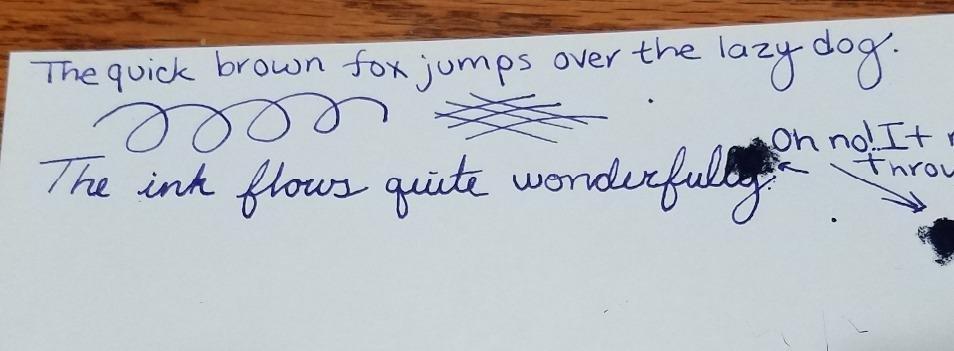 The quick brown fox jumps over the lazy dog.
The ink flows quite wonderfully.
Oh no! It